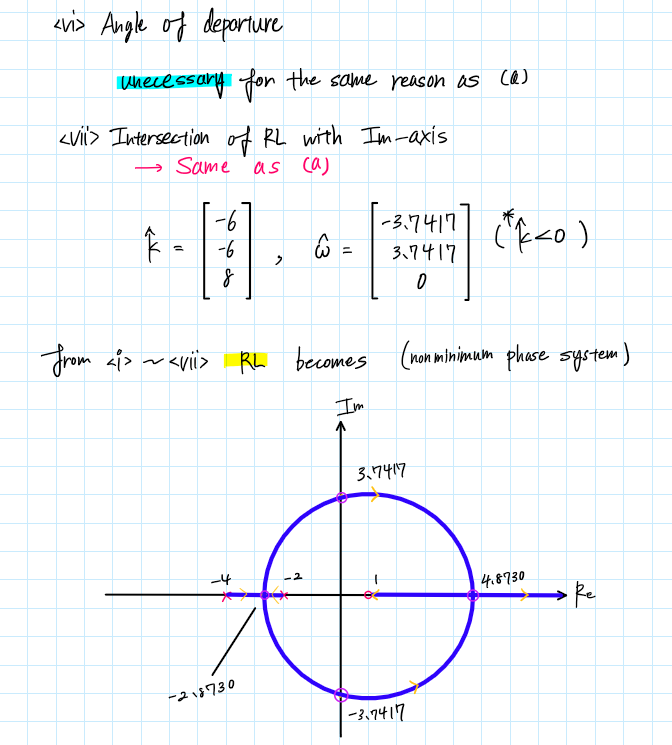 <vi> Angle of deporture
unecessary for the same reason as (a)
<vii> Intersection of RL with Im-axis
→ Same as (a)
k̂ = [-6 -6 8], ω̂ = [-3.7417 3.7417 0] (*k̂<0)
from <i> ~ <vii> RL becomes (nonminimum phase system)
Im
3.7417
-4
-2
1
4.8730
Re
-2.8730
-3.7417